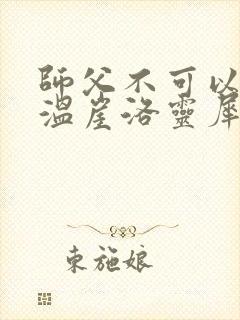 師父不可以
溫崖洛靈犀
東施娘